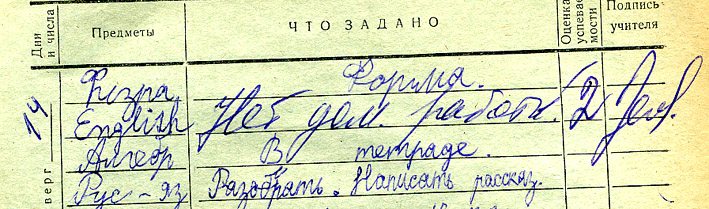 Дни и числа Предметы ЧТО ЗАДАНО Оценка успеваемости Подпись учителя
14 Физра Форма.
English Нет дом. работы. 2
Алгебр В тетраде.
верг Рус-яз Разобрать. Написать рассказ.